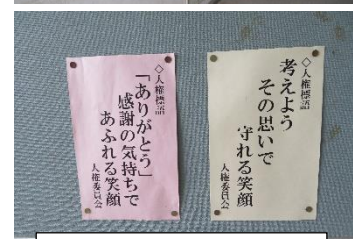 ◇人権標語
考えよう
その思いで
守れる笑顔
人権委員会
◇人権標語
「ありがとう」
感謝の気持ちで
あふれる笑顔
人権委員会